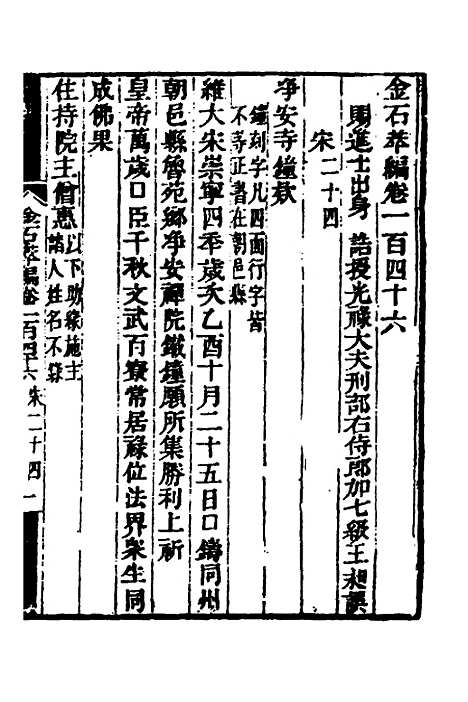 金石萃編卷一百四十六
賜進士出身 誥授光祿大夫刑部右侍郎加七級王昶譔
宋二十四
淨安寺鐘欵
鐘刻字凡四面行字皆
不等正書在朝邑縣
維大宋崇寧四年歲次乙酉十月二十五日口鑄同州
朝邑縣魯苑鄉淨安禪院鐵鐘願所集勝利上祈
皇帝萬歲口臣千秋文武百寮常居祿位法界衆生同
成佛果
住持院主僧惠以下助緣施主
諸人姓名不錄
金石萃編卷一百四十六 宋二十四 一